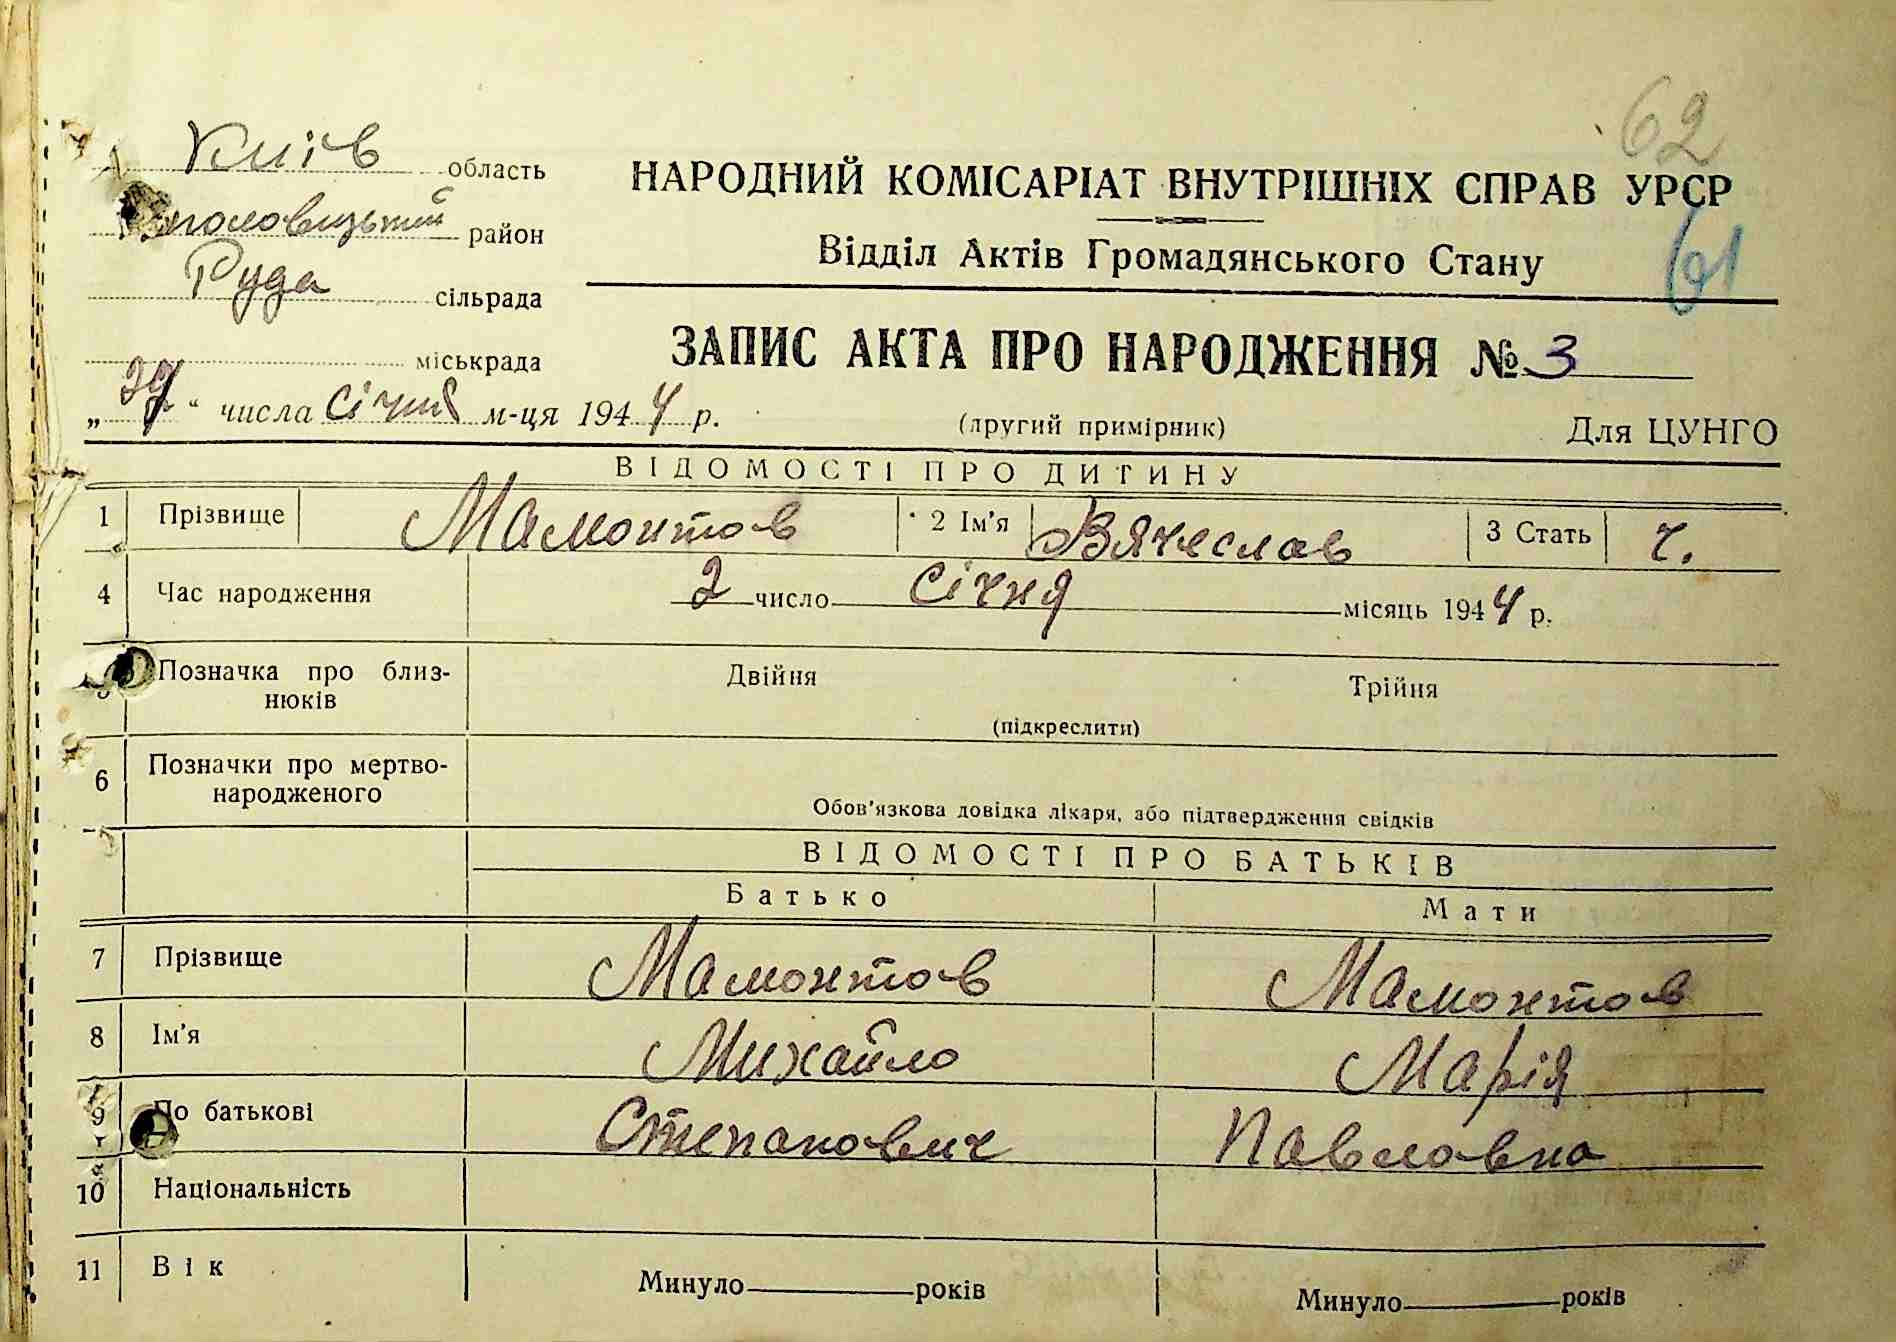 62
Київ область
район
Руда сільрада
61
міськрада
НАРОДНИЙ КОМІСАРІАТ ВНУТРІШНІХ СПРАВ УРСР
Відділ Актів Громадянського Стану
ЗАПИС АКТА ПРО НАРОДЖЕННЯ № 3
„ “ числа січня м-ця 1944 р.
(другий примірник)
Для ЦУНГО
ВІДОМОСТІ ПРО ДИТИНУ
1 Прізвище Мамонтов 2 Ім'я Вячеслав 3 Стать ч.
4 Час народження 2 число Січня місяць 1944 р.
5 Позначка про близ- Двійня Трійня
нюків (підкреслити)
6 Позначки про мертво-
народженого Обов'язкова довідка лікаря, або підтвердження свідків
ВІДОМОСТІ ПРО БАТЬКІВ
Батько Мати
7 Прізвище Мамонтов Мамонтов
8 Ім'я Михайло Марія
9 По батькові Степанович Павловна
10 Національність
11 Вік Минуло років Минуло років